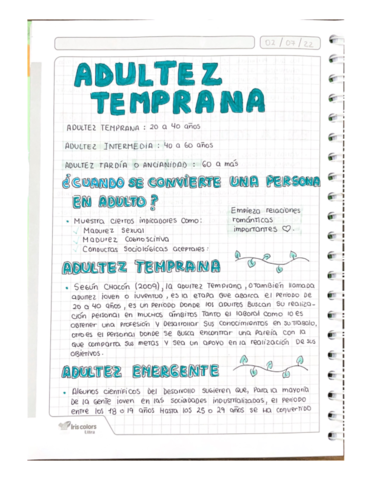 02/09/22
ADULTEZ
TEMPRANA
ADULTEZ TEMPRANA : 20 a 40 años
ADULTEZ INTERMEDIA : 40 a 60 años
ADULTEZ TARDÍA O ANCIANIDAD : 60 a más
¿CUANDO SE CONVIERTE UNA PERSONA
EN ADULTO?
• Muestra ciertos indicadores como:
Madurez Sexual
Madurez Cognoscitiva
Conductas Sociológicas aceptables
Empieza relaciones
románticas
importantes
ADULTEZ TEMPRANA
• Según Chacón (2009), la adultez temprana, o también llamada
adultez joven o juventud, es la etapa que abarca el periodo de
20 a 40 años, es un periodo donde los adultos buscan su realiza-
ción personal en muchos ámbitos tanto el laboral como lo es
obtener una profesión y desarrollar sus conocimientos en su trabajo,
otro es el personal donde se busca encontrar una pareja con la
que comparta sus metas y sea un apoyo en la realización de sus
objetivos.
ADULTEZ EMERGENTE
• Algunos científicos del desarrollo sugieren que, para la mayoría
de la gente joven en las sociedades industrializadas, el periodo
entre los 18 o 19 años hasta los 25 o 29 años se ha convertido
Iris colors